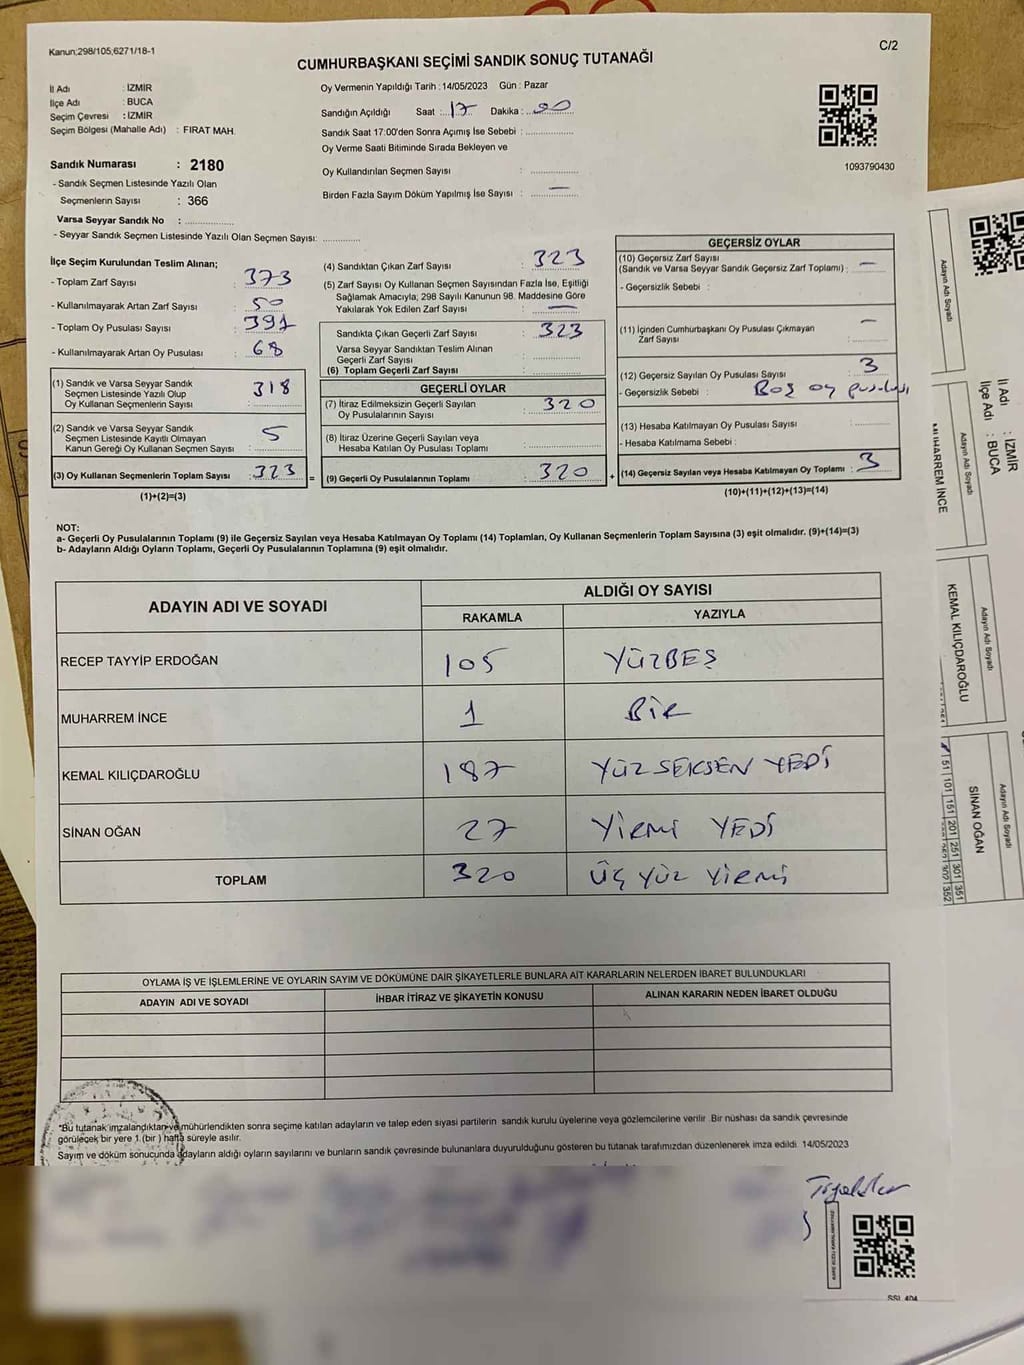 Kanun;298/105,6271/18-1
C/2
CUMHURBAŞKANI SEÇİMİ SANDIK SONUÇ TUTANAĞI
İl Adı : İZMİR
İlçe Adı : BUCA
Seçim Çevresi : İZMİR
Seçim Bölgesi (Mahalle Adı) : FIRAT MAH.
Sandık Numarası : 2180
- Sandık Seçmen Listesinde Yazılı Olan
Seçmenlerin Sayısı : 366
Varsa Seyyar Sandık No :
- Seyyar Sandık Seçmen Listesinde Yazılı Olan Seçmen Sayısı:
Oy Vermenin Yapıldığı Tarih : 14/05/2023 Gün : Pazar
Sandığın Açıldığı Saat : 17 Dakika : 00
Sandık Saat 17:00'den Sonra Açımış İse Sebebi :
Oy Verme Saati Bitiminde Sırada Bekleyen ve
Oy Kullandırılan Seçmen Sayısı :
Birden Fazla Sayım Döküm Yapılmış İse Sayısı : —
1093790430
İlçe Seçim Kurulundan Teslim Alınan;
- Toplam Zarf Sayısı : 373
- Kullanılmayarak Artan Zarf Sayısı : 50
- Toplam Oy Pusulası Sayısı : 391
- Kullanılmayarak Artan Oy Pusulası : 68
(1) Sandık ve Varsa Seyyar Sandık
Seçmen Listesinde Yazılı Olup
Oy Kullanan Seçmenlerin Sayısı : 318
(2) Sandık ve Varsa Seyyar Sandık
Seçmen Listesinde Kayıtlı Olmayan
Kanun Gereği Oy Kullanan Seçmen Sayısı : 5
(3) Oy Kullanan Seçmenlerin Toplam Sayısı : 323
(1)+(2)=(3)
(4) Sandıktan Çıkan Zarf Sayısı : 323
(5) Zarf Sayısı Oy Kullanan Seçmen Sayısından Fazla İse, Eşitliği
Sağlamak Amacıyla; 298 Sayılı Kanunun 98. Maddesine Göre
Yakılarak Yok Edilen Zarf Sayısı : —
Sandıkta Çıkan Geçerli Zarf Sayısı : 323
Varsa Seyyar Sandıktan Teslim Alınan
Geçerli Zarf Sayısı :
(6) Toplam Geçerli Zarf Sayısı :
GEÇERLİ OYLAR
(7) İtiraz Edilmeksizin Geçerli Sayılan
Oy Pusulalarının Sayısı : 320
(8) İtiraz Üzerine Geçerli Sayılan veya
Hesaba Katılan Oy Pusulası Toplamı :
= (9) Geçerli Oy Pusulalarının Toplamı : 320
GEÇERSİZ OYLAR
(10) Geçersiz Zarf Sayısı
(Sandık ve Varsa Seyyar Sandık Geçersiz Zarf Toplamı) : —
- Geçersizlik Sebebi :
(11) İçinden Cumhurbaşkanı Oy Pusulası Çıkmayan
Zarf Sayısı : —
(12) Geçersiz Sayılan Oy Pusulası Sayısı : 3
- Geçersizlik Sebebi : Boş oy pusulası
(13) Hesaba Katılmayan Oy Pusulası Sayısı :
- Hesaba Katılmama Sebebi :
+ (14) Geçersiz Sayılan veya Hesaba Katılmayan Oy Toplamı : 3
(10)+(11)+(12)+(13)=(14)
NOT:
a- Geçerli Oy Pusulalarının Toplamı (9) ile Geçersiz Sayılan veya Hesaba Katılmayan Oy Toplamı (14) Toplamları, Oy Kullanan Seçmenlerin Toplam Sayısına (3) eşit olmalıdır. (9)+(14)=(3)
b- Adayların Aldığı Oyların Toplamı, Geçerli Oy Pusulalarının Toplamına (9) eşit olmalıdır.
ADAYIN ADI VE SOYADI
ALDIĞI OY SAYISI
RAKAMLA YAZIYLA
RECEP TAYYİP ERDOĞAN 105 YÜZBEŞ
MUHARREM İNCE 1 BİR
KEMAL KILIÇDAROĞLU 187 YÜZ SEKSEN YEDİ
SİNAN OĞAN 27 YİRMİ YEDİ
TOPLAM 320 ÜÇ YÜZ YİRMİ
OYLAMA İŞ VE İŞLEMLERİNE VE OYLARIN SAYIM VE DÖKÜMÜNE DAİR ŞİKAYETLERLE BUNLARA AİT KARARLARIN NELERDEN İBARET BULUNDUKLARI
ADAYIN ADI VE SOYADI İHBAR İTİRAZ VE ŞİKAYETİN KONUSU ALINAN KARARIN NEDEN İBARET OLDUĞU
*Bu tutanak imzalandıktan ve mühürlendikten sonra seçime katılan adayların ve talep eden siyasi partilerin sandık kurulu üyelerine veya gözlemcilerine verilir. Bir nüshası da sandık çevresinde
görülecek bir yere 1 (bir) hafta süreyle asılır.
Sayım ve döküm sonucunda adayların aldığı oyların sayılarını ve bunların sandık çevresinde bulunanlara duyurulduğunu gösteren bu tutanak tarafımızdan düzenlenerek imza edildi. 14/05/2023
Adayın Adı Soyadı
İl Adı : İZMİR
İlçe Adı : BUCA
Adayın Adı Soyadı
MUHARREM İNCE
Adayın Adı Soyadı
KEMAL KILIÇDAROĞLU
Adayın Adı Soyadı
SİNAN OĞAN
51 101 151 201 251 301 351